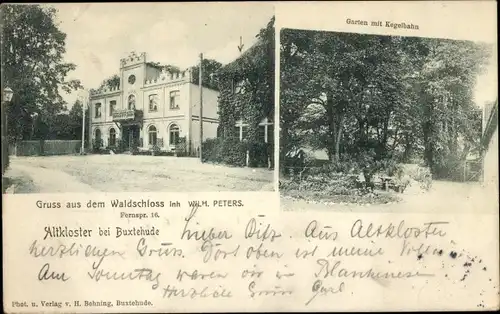 Garten mit Kegelbahn
Gruss aus dem Waldschloss Inh WILH. PETERS.
Fernspr. 16.
Altkloster bei Buxtehude
Lieber Aus Altkloster
herzlichen Gruss. Dort oben ist meine
Am Sonntag waren wir in Blankenese
Herzliche Gruss
Phot. u. Verlag v. H. Behning, Buxtehude.